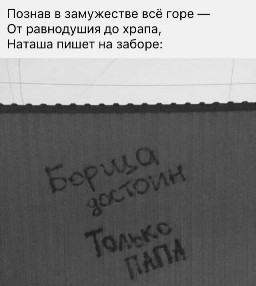 Познав в замужестве всё горе —
От равнодушия до храпа,
Наташа пишет на заборе:
Борща
достоин
Только
ПАПА